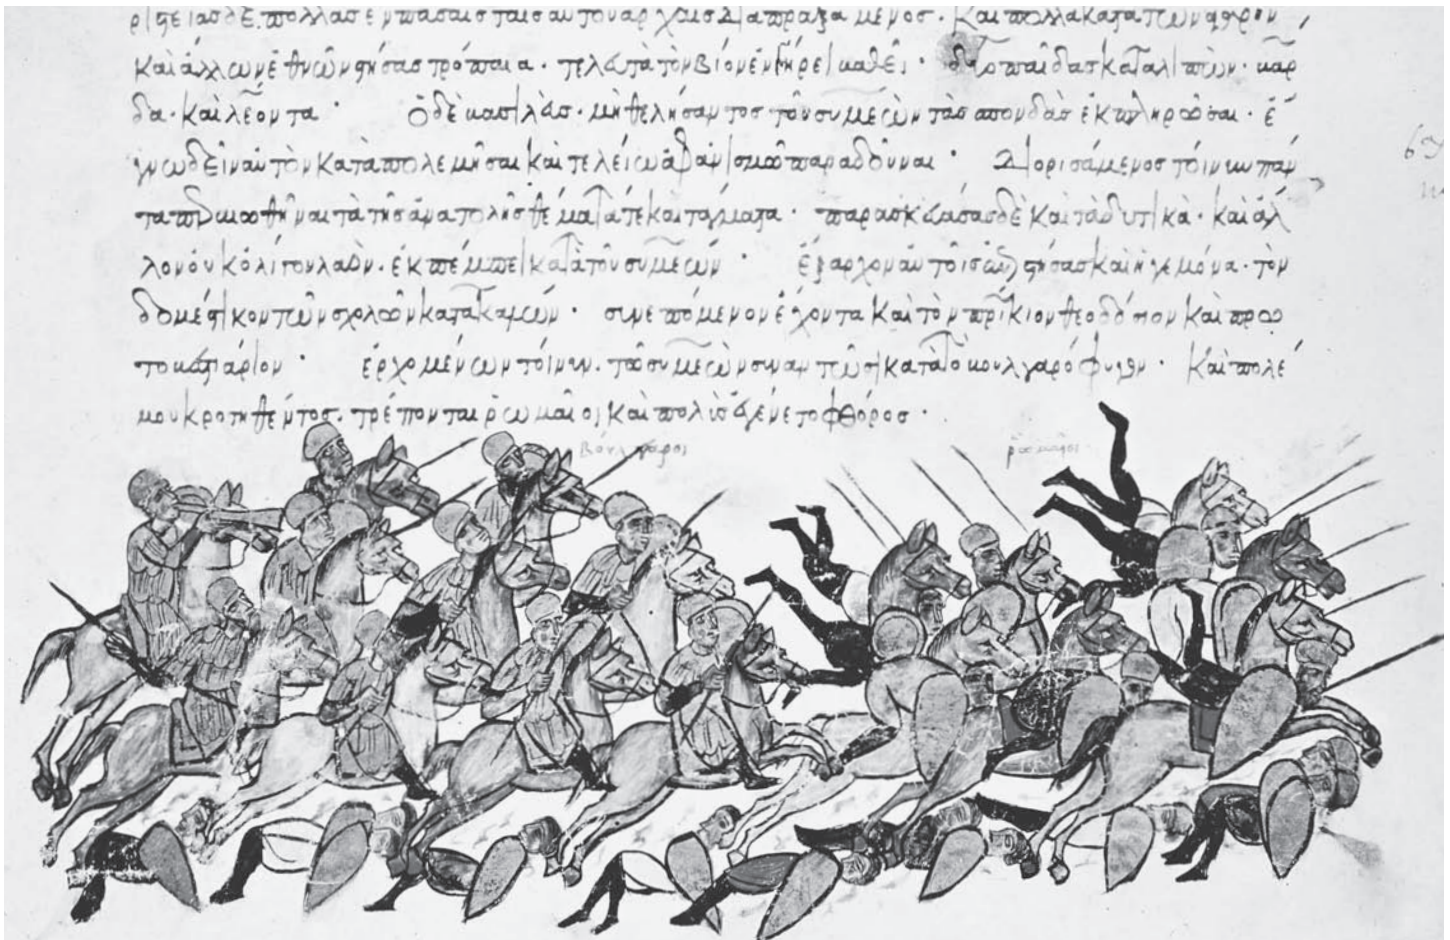 ριστείας δὲ πολλὰς ἐν πάσαις ταῖς αὐτοῦ ἀρχαῖς διαπραξάμενος· καὶ πολλὰ κατὰ τῶν ἀγαρην
καὶ ἄλλων ἐθνῶν στήσας τρόπαια· τελευτᾶ τὸν βίον ἐν γήρει καθεῖ· δύο παῖδας καταλιπών· βάρ
δα· καὶ λέοντα· ὁ δὲ βασιλεὺς· μὴ θελήσαντος τοῦ συμεὼν τὰς σπονδὰς ἐκπληρῶσαι· ἔ
γνω δεῖν αὐτὸν καταπολεμῆσαι καὶ τελείω ἀφανισμῶ παραδοῦναι· διορισάμενος τοίνυν πάν
τα περαιωθῆναι τὰ τῆς ἀνατολῆς θέματά τε καὶ τάγματα· παρασκευάσας δὲ καὶ τὰ δυτικά· καὶ ἄλ
λον οὐκ ὀλίγον λαὸν· ἐκπέμπει κατὰ τοῦ συμεών· ἔξαρχον αὐτοῖς στήσας καὶ ἡγεμόνα· τὸν
δομέστικον τῶν σχολῶν κατακαλών· συνεπόμενον ἔχοντα καὶ τὸν πατρίκιον θεοδόσιον καὶ πρω
τοβεστιάριον· ἐρχομένων τοίνυν· τῶ συμεὼν συναντῶσι κατὰ τὸ βουλγαρόφυγον· καὶ πολέ
μου κροτηθέντος· τρέπονται ῥωμαῖοι καὶ πολὺς ἐγένετο φθόρος·
βούλγαροι ῥωμαῖοι